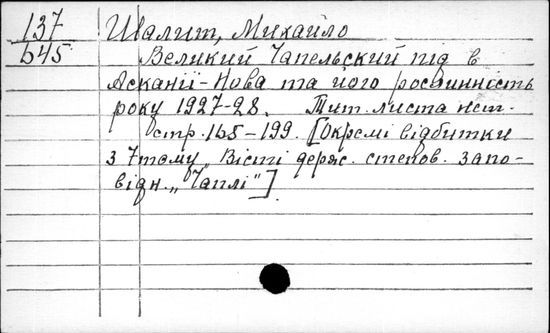 137 Шалит, Михайло
545 Великий Чапельский під в
Асканії-Нова та його рослинность
року 1927-28. Тит. листа нет.
стр. 165-199. [Окремі відбитки
з 7 тому „Вісті держ. степов. запо-
відн. „Чаплі"]